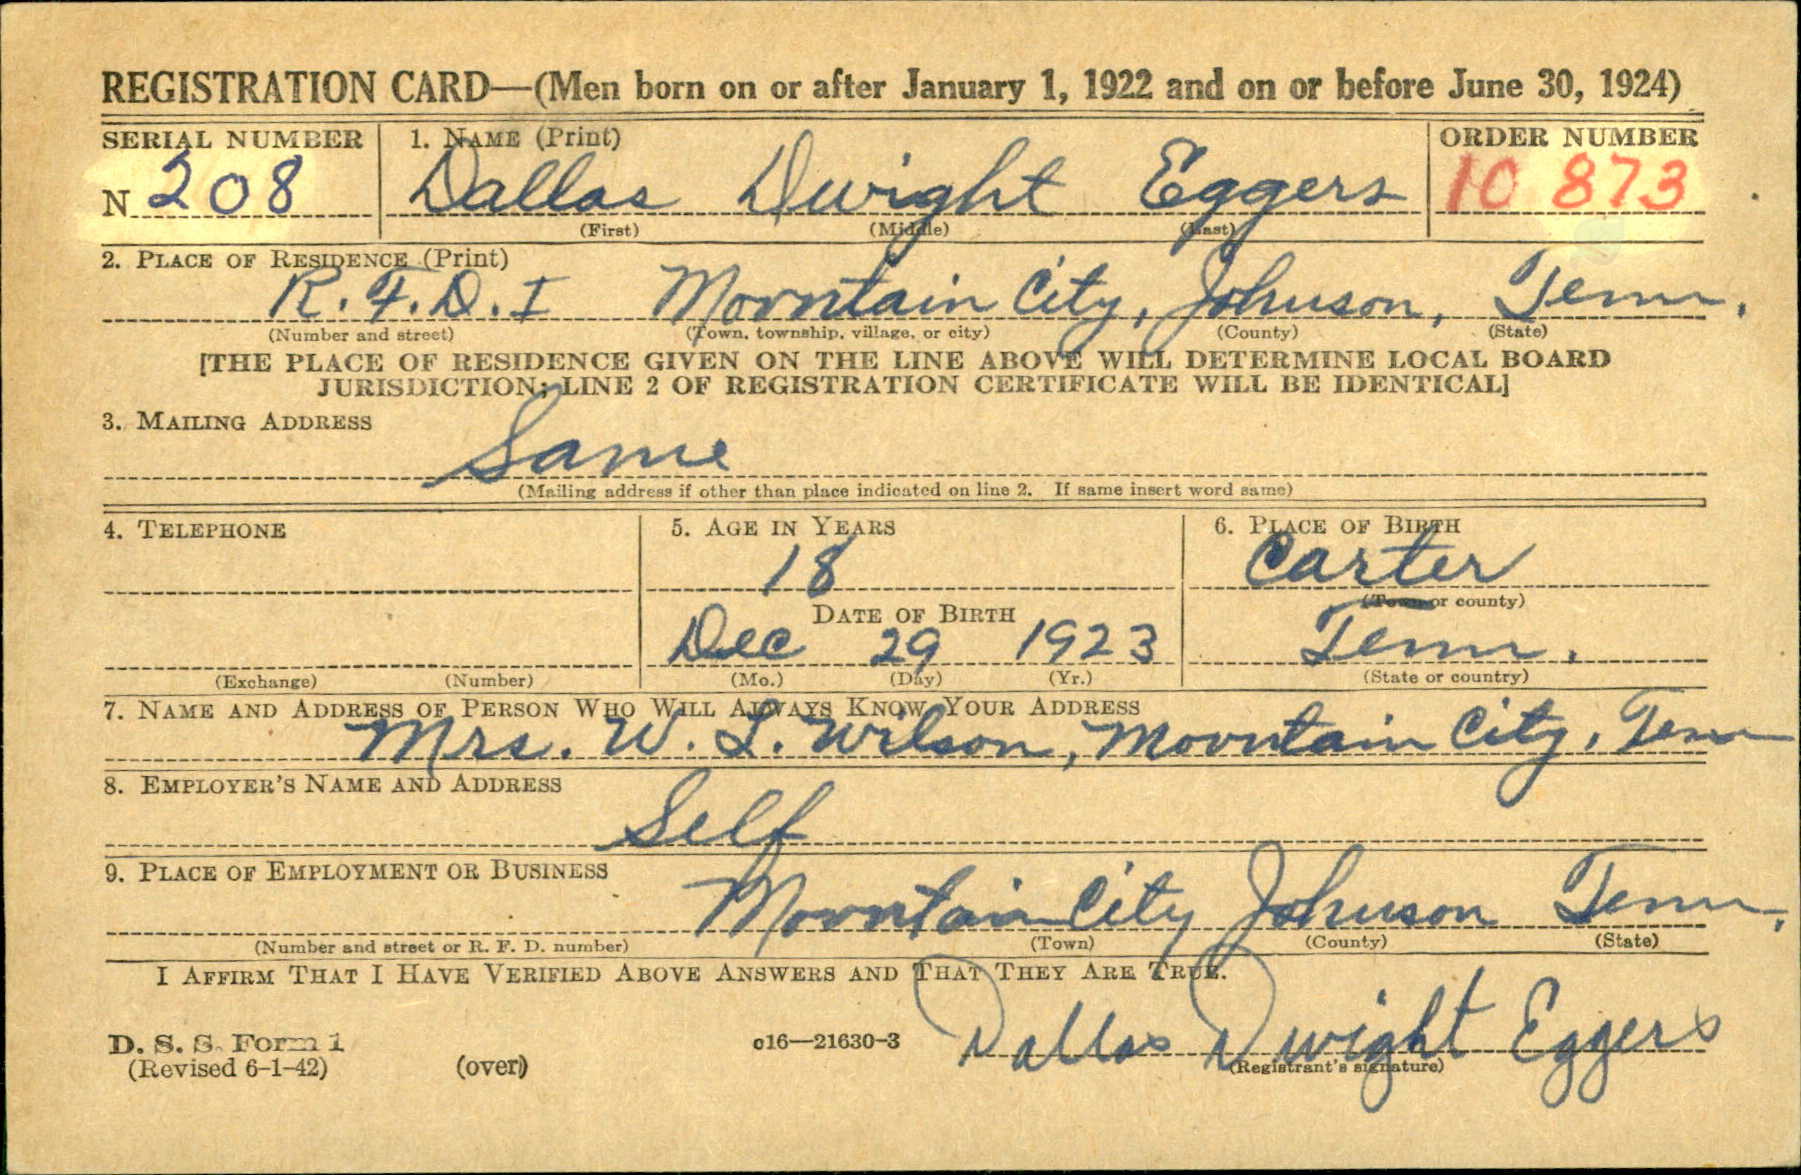 REGISTRATION CARD—(Men born on or after January 1, 1922 and on or before June 30, 1924)
SERIAL NUMBER 1. NAME (Print) ORDER NUMBER
N 208 Dallas Dwight Eggers 10 873
(First) (Middle) (Last)
2. PLACE OF RESIDENCE (Print)
R. F. D. I Mountain City, Johnson, Tenn.
(Number and street) (Town, township, village, or city) (County) (State)
[THE PLACE OF RESIDENCE GIVEN ON THE LINE ABOVE WILL DETERMINE LOCAL BOARD
JURISDICTION; LINE 2 OF REGISTRATION CERTIFICATE WILL BE IDENTICAL]
3. MAILING ADDRESS
Same
(Mailing address if other than place indicated on line 2. If same insert word same)
4. TELEPHONE 5. AGE IN YEARS 6. PLACE OF BIRTH
18 Carter
DATE OF BIRTH (Town or county)
Dec 29 1923 Tenn.
(Exchange) (Number) (Mo.) (Day) (Yr.) (State or country)
7. NAME AND ADDRESS OF PERSON WHO WILL ALWAYS KNOW YOUR ADDRESS
Mrs. W. L. Wilson, Mountain City, Tenn
8. EMPLOYER'S NAME AND ADDRESS
Self
9. PLACE OF EMPLOYMENT OR BUSINESS
Mountain City Johnson Tenn.
(Number and street or R. F. D. number) (Town) (County) (State)
I AFFIRM THAT I HAVE VERIFIED ABOVE ANSWERS AND THAT THEY ARE TRUE.
D. S. S. Form 1 c16—21630-3 Dallas Dwight Eggers
(Revised 6-1-42) (over) (Registrant's signature)